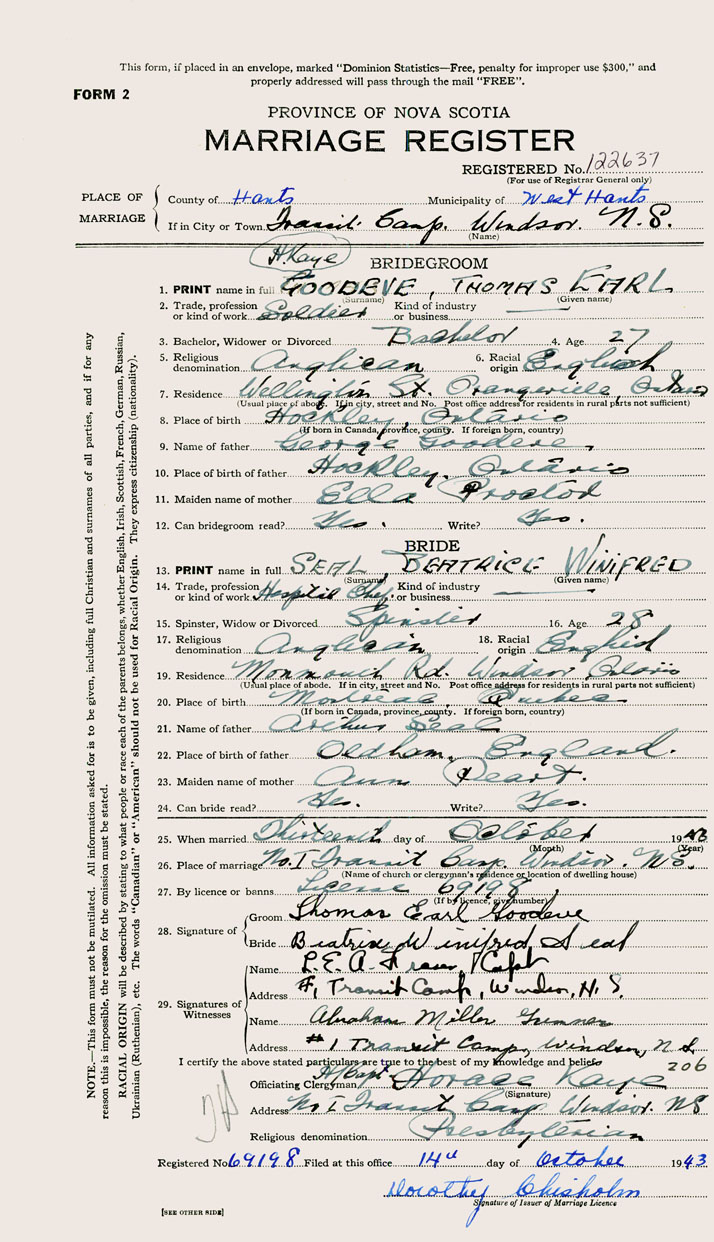 This form, if placed in an envelope, marked “Dominion Statistics—Free, penalty for improper use $300,” and
properly addressed will pass through the mail “FREE”.
FORM 2
PROVINCE OF NOVA SCOTIA
MARRIAGE REGISTER
REGISTERED No. 122637
(For use of Registrar General only)
PLACE OF MARRIAGE
County of Hants Municipality of West Hants
If in City or Town. Transit Camp. Windsor. N.S.
(Name)
H. Kaye
BRIDEGROOM
1. PRINT name in full GOODEVE, THOMAS EARL
(Surname) (Given name)
2. Trade, profession or kind of work Soldier Kind of industry or business
3. Bachelor, Widower or Divorced Bachelor 4. Age 27
5. Religious denomination Anglican 6. Racial origin English
7. Residence Wellington St. Orangeville, Ontario
(Usual place of abode. If in city, street and No. Post office address for residents in rural parts not sufficient)
8. Place of birth Hockley, Ontario
(If born in Canada, province, county. If foreign born, country)
9. Name of father George Goodeve
10. Place of birth of father Hockley, Ontario
11. Maiden name of mother Ella Proctor
12. Can bridegroom read? Yes. Write? Yes.
BRIDE
13. PRINT name in full SEAL BEATRICE WINIFRED
(Surname) (Given name)
14. Trade, profession or kind of work Hospital Chef. Kind of industry or business
15. Spinster, Widow or Divorced Spinster 16. Age 28
17. Religious denomination Anglican 18. Racial origin English
19. Residence Monmouth Rd. Windsor Ontario
(Usual place of abode. If in city, street and No. Post office address for residents in rural parts not sufficient)
20. Place of birth Montreal, Quebec
(If born in Canada, province, county. If foreign born, country)
21. Name of father Arthur Seal
22. Place of birth of father Oldham, England.
23. Maiden name of mother Ann Peart.
24. Can bride read? Yes. Write? Yes.
25. When married Thirteenth day of October 1943
(Month) (Year)
26. Place of marriage No. 1 Transit Camp. Windsor. N.S.
(Name of church or clergyman's residence or location of dwelling house)
27. By licence or banns License 69198
(If by licence, give number)
28. Signature of
Groom Thomas Earl Goodeve
Bride Beatrice Winifred Seal
29. Signatures of Witnesses
Name L.E.A. Fraser, Capt
Address #1, Transit Camp, Windsor, N.S.
Name Abraham Miller Gunner
Address #1 Transit Camp, Windsor, N.S.
I certify the above stated particulars are true to the best of my knowledge and belief. 206
Officiating Clergyman, H/Capt Horace Kaye
(Signature)
Address No 1 Transit Camp Windsor. NS
Religious denomination Presbyterian
Registered No. 69198 Filed at this office 14th day of October 1943
Dorothy Chisholm
Signature of Issuer of Marriage Licence
[SEE OTHER SIDE]
NOTE.—This form must not be mutilated. All information asked for is to be given, including full Christian and surnames of all parties, and if for any
reason this is impossible, the reason for the omission must be stated.
RACIAL ORIGIN will be described by stating to what people or race each of the parents belongs, whether English, Irish, Scottish, French, German, Russian,
Ukrainian (Ruthenian), etc. The words “Canadian” or “American” should not be used for Racial Origin. They express citizenship (nationality).